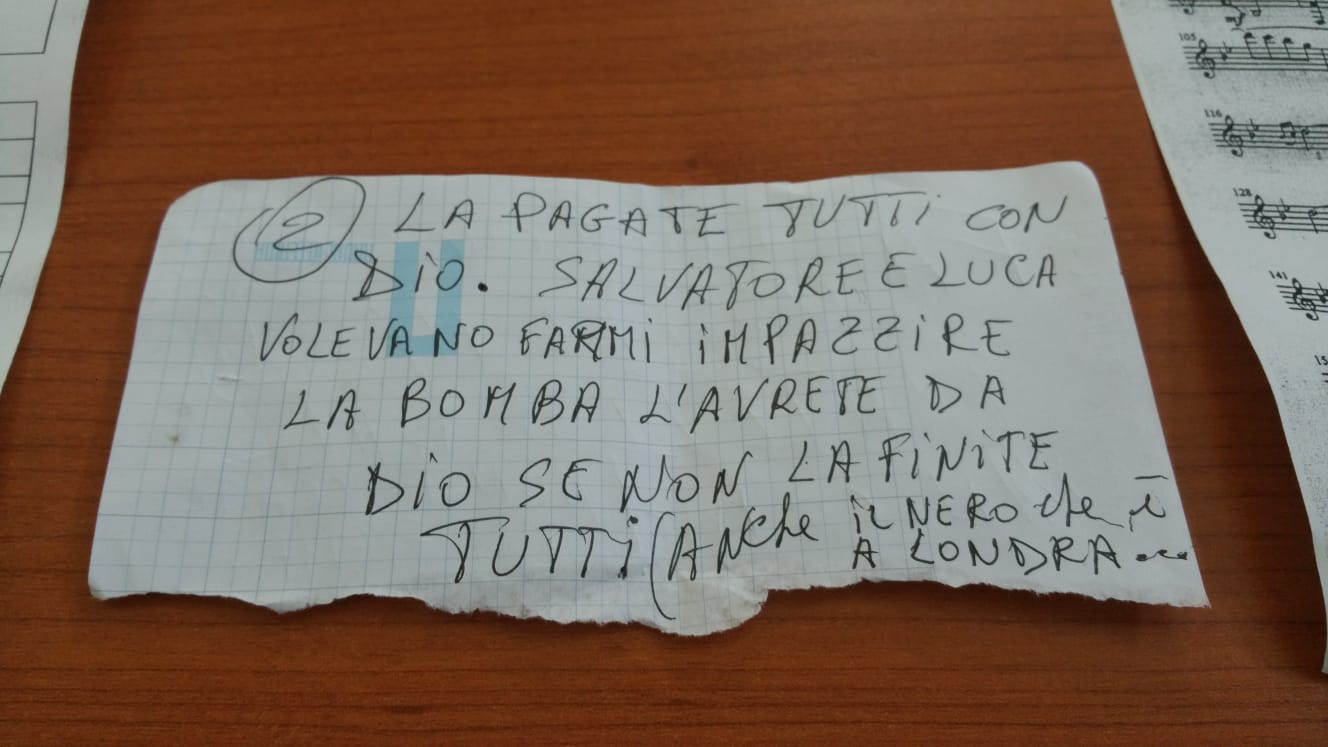 2 LA PAGATE TUTTi CON
DiO. SALVATORE E LUCA
VOLEVANO FARMi iMPAZZiRE
LA BOMBA L'AVRETE DA
DiO SE NON LA FiNiTE
TUTTi (ANche iL NERO che è
A LONDRA
105
116
128
141